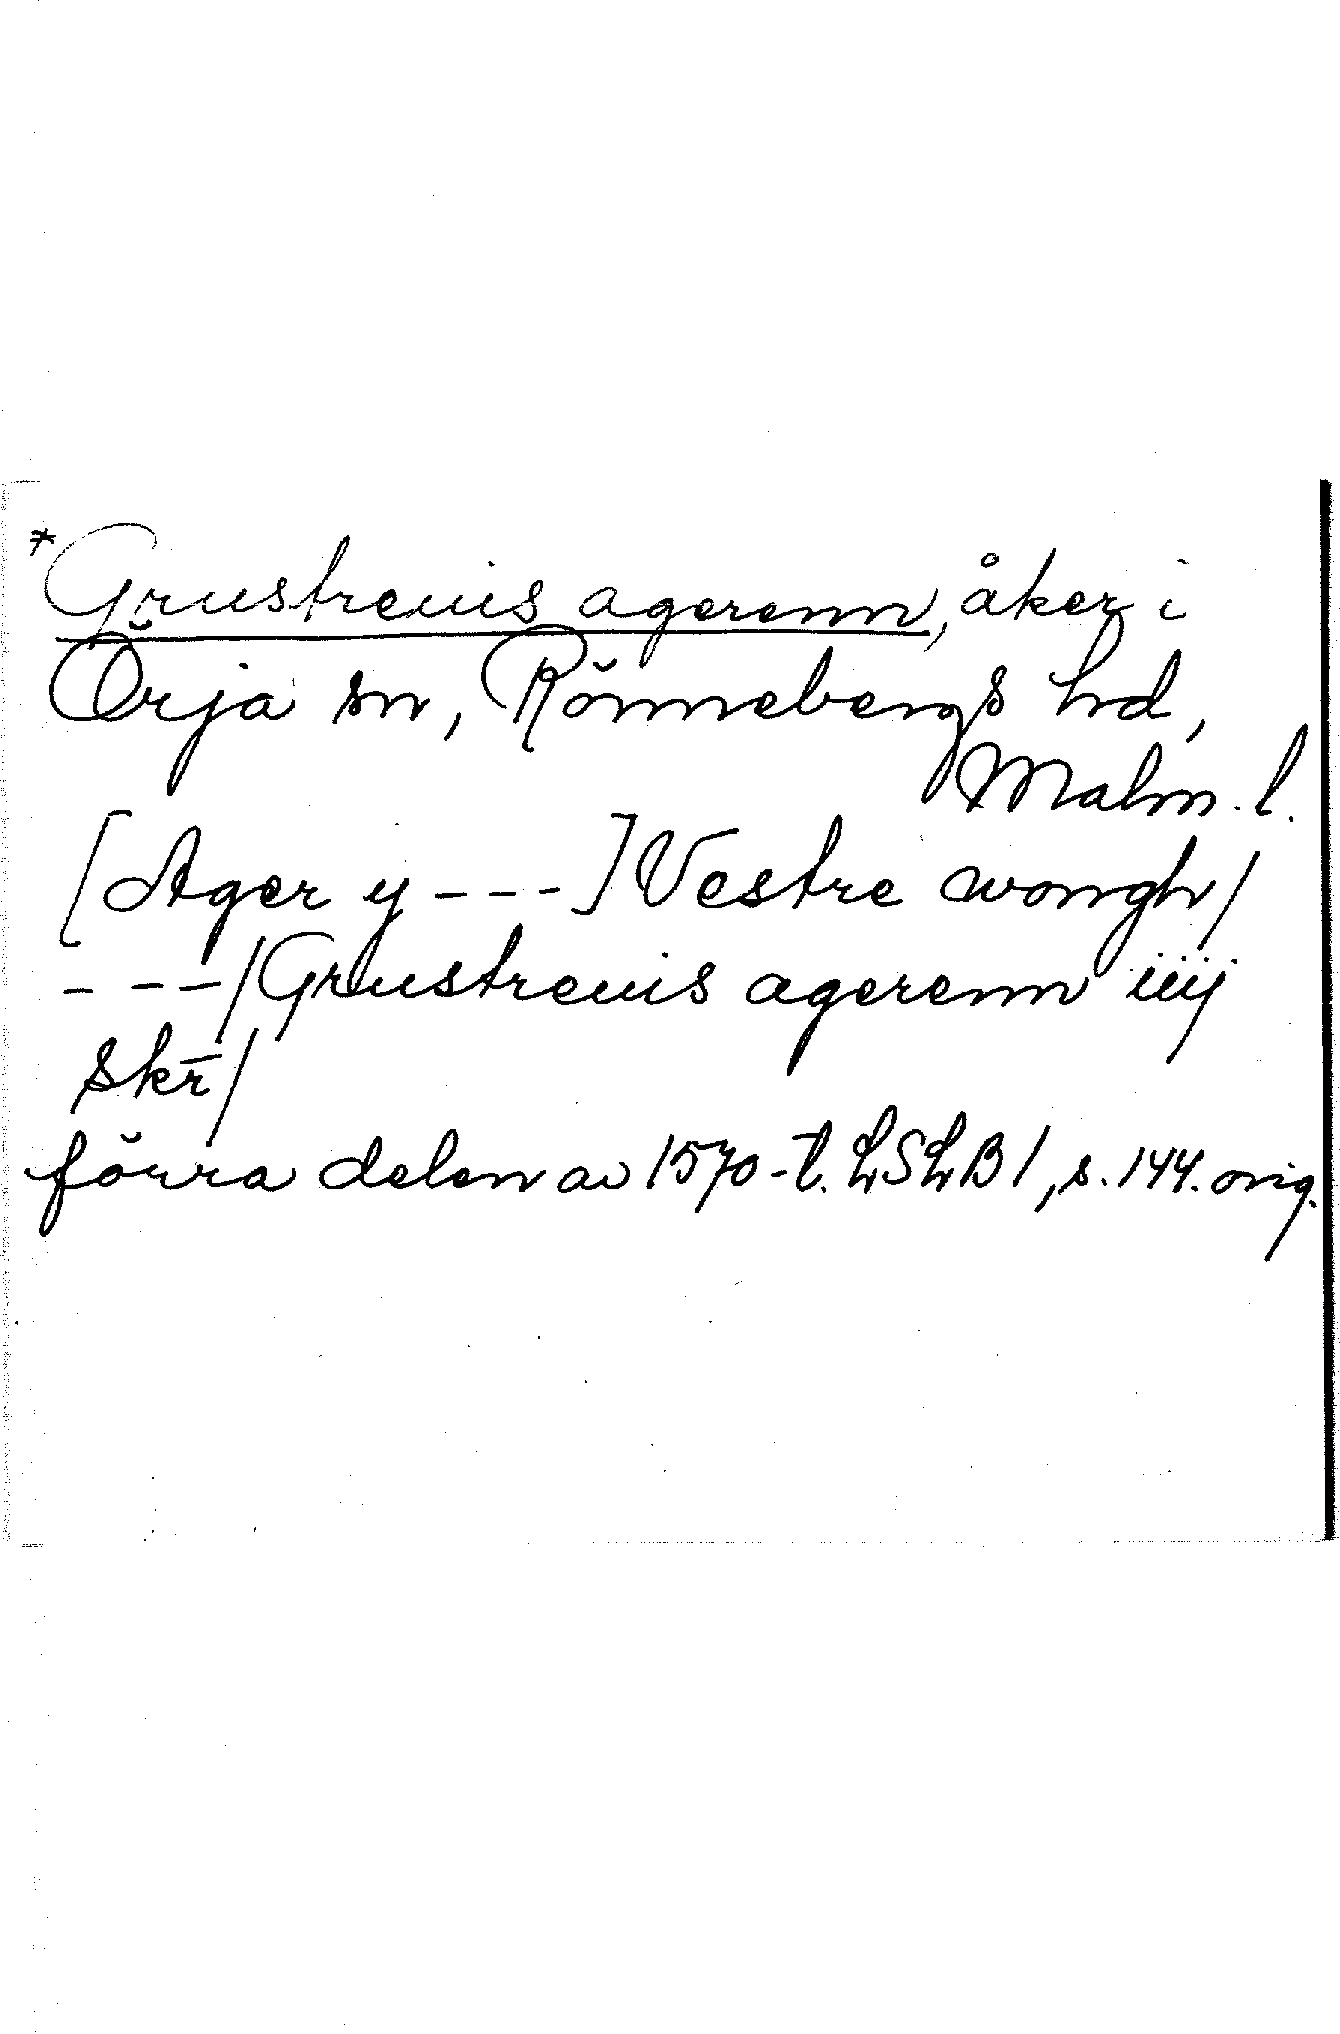 *Grustreuis agerenn, åker i
Örja sn, Rönnebergs hd,
Malm. l.
[Ager y - - - ] Vestre wongh/
- - - /Grustreuis agerenn iiij
skr̄/
förra delen av 1570-t. LSLB1, s. 144. orig.